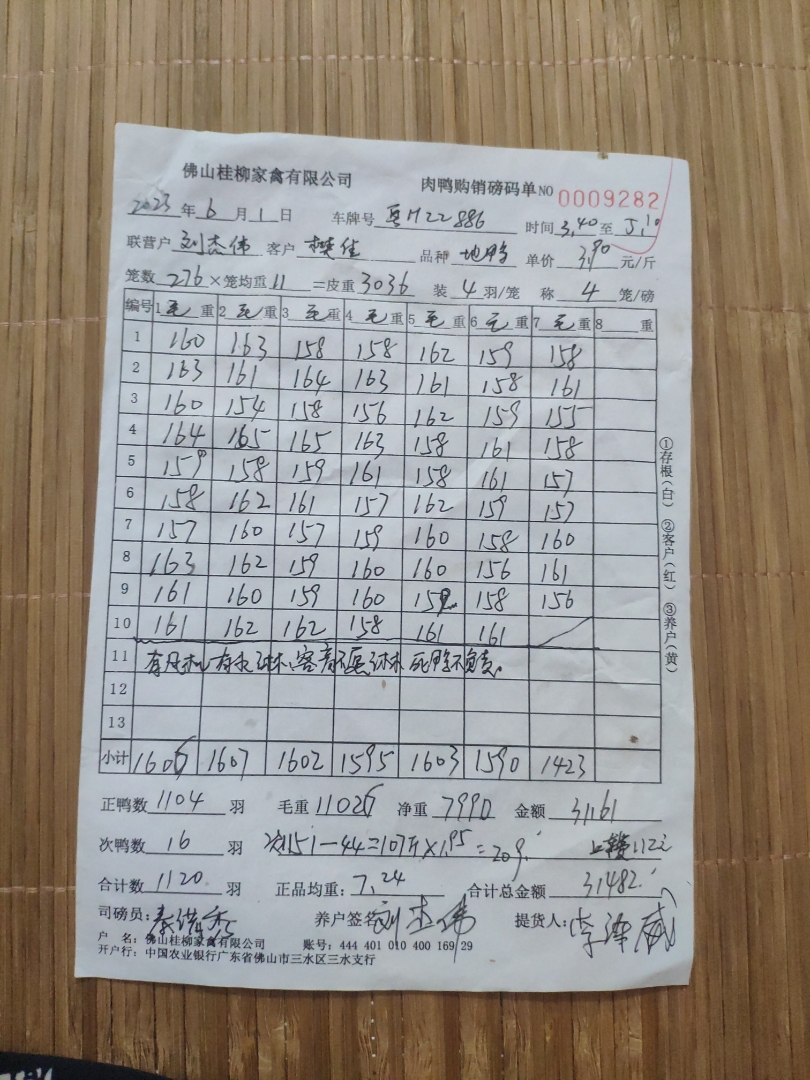 佛山桂柳家禽有限公司 肉鸭购销磅码单 NO 0009282
2023年6月1日 车牌号 粤H22886 时间 3.40 至 5.10
联营户 刘杰伟 客户 樊佳 品种 地鸭 单价 3.90 元/斤
笼数 276 ×笼均重 11 =皮重 3036 装 4 羽/笼 称 4 笼/磅
编号 1 毛 重 2 毛 重 3 毛 重 4 毛 重 5 毛 重 6 毛 重 7 毛 重 8 重
1 160 163 158 158 162 159 158
2 163 161 164 163 161 158 161
3 160 154 158 156 162 159 155
4 164 165 165 163 158 161 158
5 159 158 159 161 158 161 157
6 158 162 161 157 162 159 157
7 157 160 157 159 160 158 160
8 163 162 159 160 160 156 161
9 161 160 159 160 159 158 156
10 161 162 162 158 161 161
11 有风机 有水淋, 客 不 淋 死鸭不负责。
12
13
小计 1606 1607 1602 1595 1603 1590 1423
正鸭数 1104 羽 毛重 11026 净重 7990 金额 31161
次鸭数 16 羽 次151-44=107斤×1.95=209. 112
合计数 1120 羽 正品均重: 7.24 合计总金额 31482.
司磅员: 养户签名 刘杰伟 提货人: 李 威
户 名: 佛山桂柳家禽有限公司 账号: 444 401 010 400 169 29
开户行: 中国农业银行广东省佛山市三水区三水支行
①存根(白) ②客户(红) ③养户(黄)